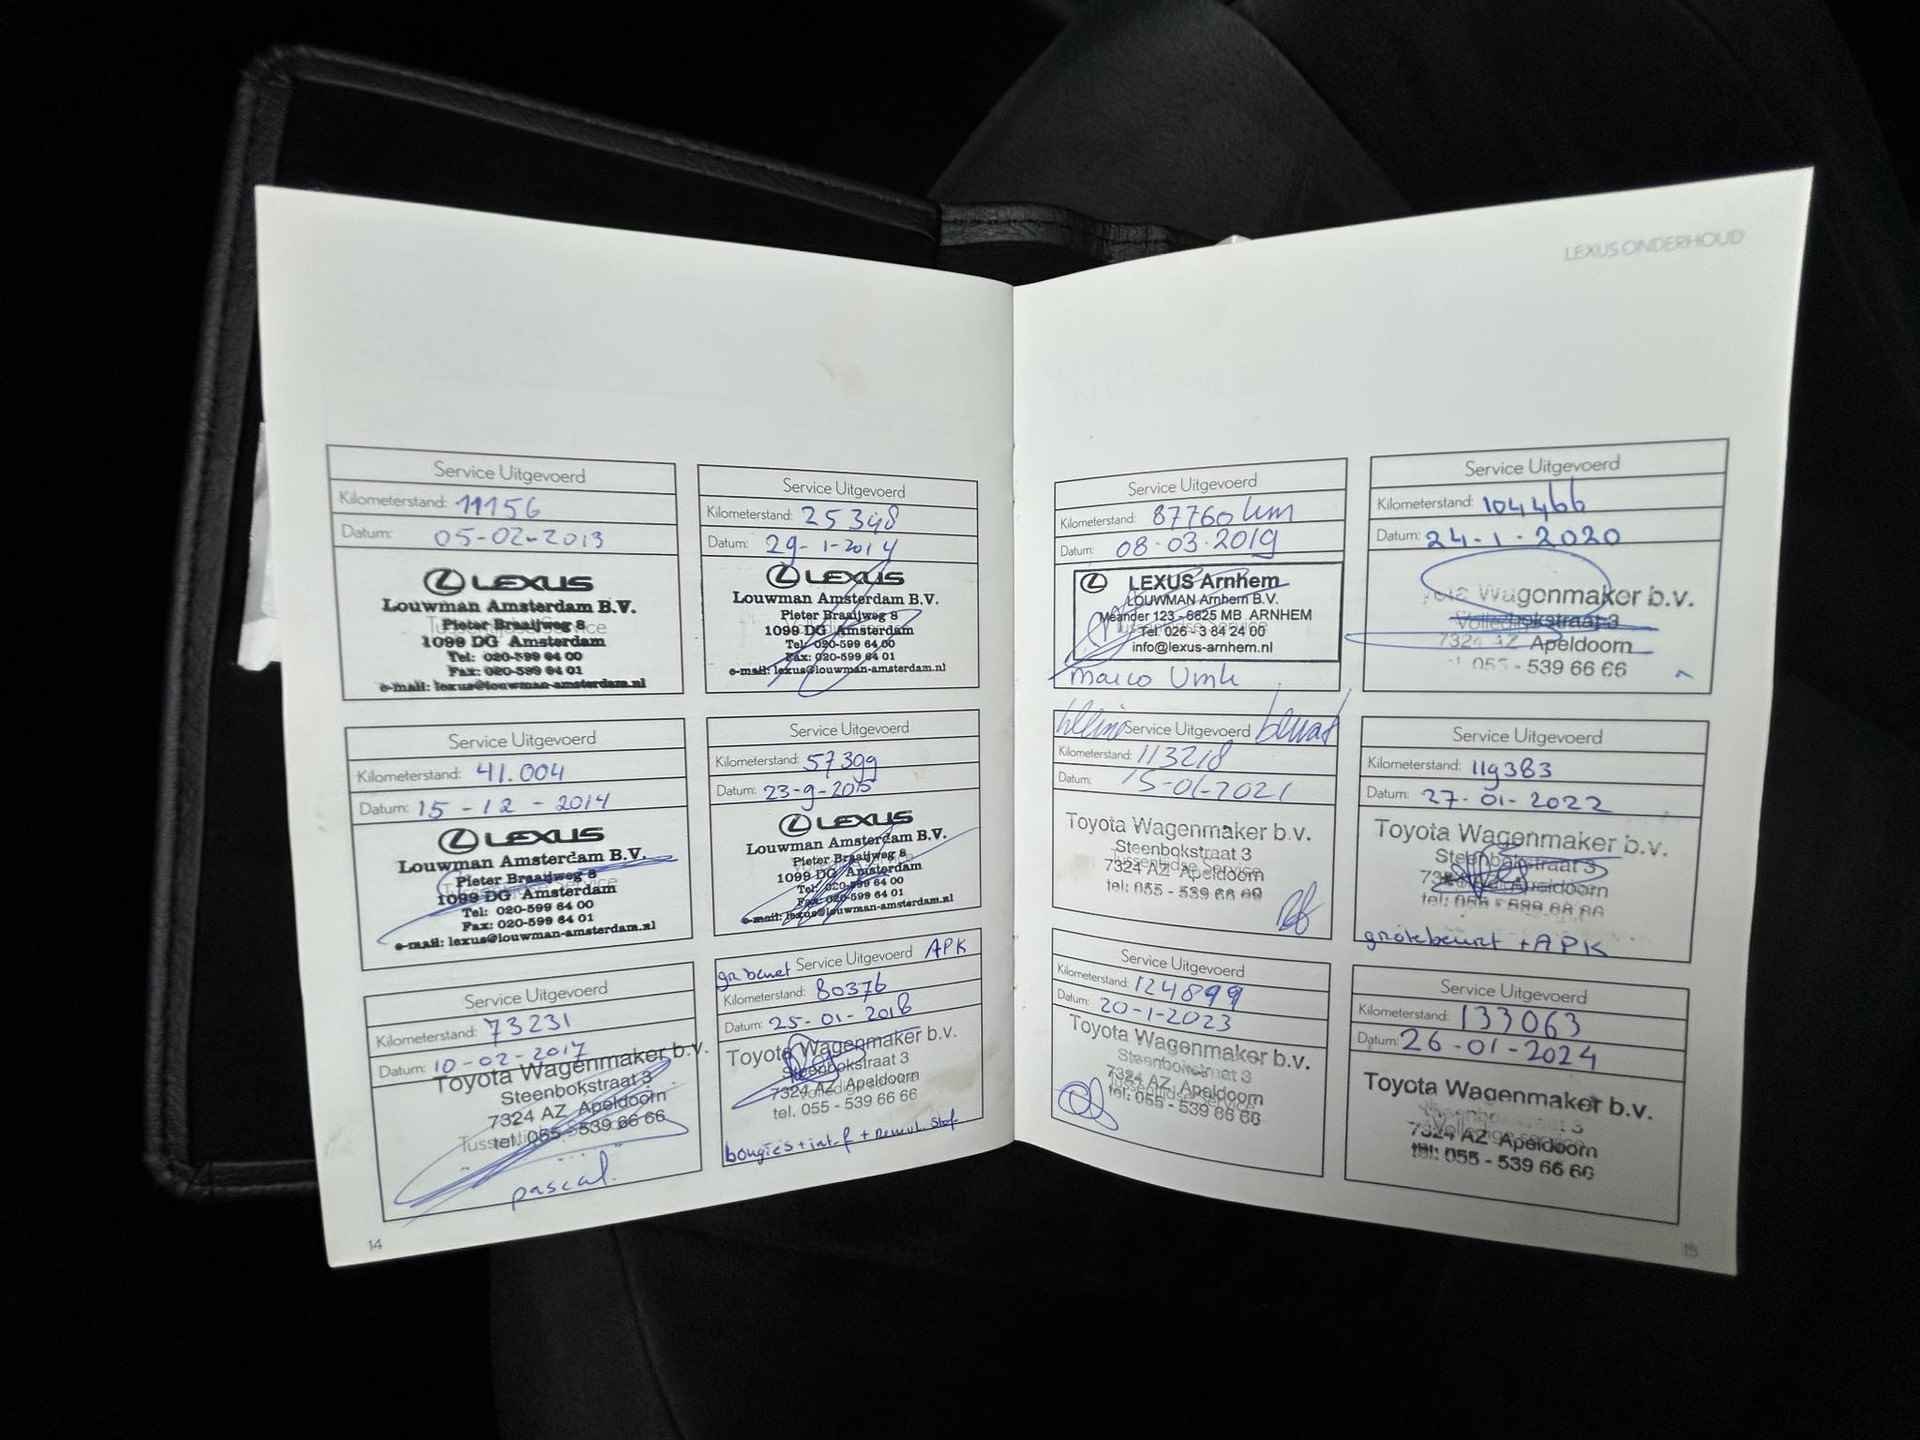 LEXUS ONDERHOUD
Service Uitgevoerd
Kilometerstand: 11156
Datum: 05-02-2013
LEXUS
Louwman Amsterdam B.V.
Pieter Braaijweg 8
1099 DG Amsterdam
Tel: 020-599 64 00
Fax: 020-599 64 01
e-mail: lexus@louwman-amsterdam.nl
Service Uitgevoerd
Kilometerstand: 25348
Datum: 29-1-2014
LEXUS
Louwman Amsterdam B.V.
Pieter Braaijweg 8
1099 DG Amsterdam
Tel: 020-599 64 00
Fax: 020-599 64 01
e-mail: lexus@louwman-amsterdam.nl
Service Uitgevoerd
Kilometerstand: 41.004
Datum: 15-12-2014
LEXUS
Louwman Amsterdam B.V.
Pieter Braaijweg 8
1099 DG Amsterdam
Tel: 020-599 64 00
Fax: 020-599 64 01
e-mail: lexus@louwman-amsterdam.nl
Service Uitgevoerd
Kilometerstand: 57399
Datum: 23-9-2015
LEXUS
Louwman Amsterdam B.V.
Pieter Braaijweg 8
1099 DG Amsterdam
Tel: 020-599 64 00
Fax: 020-599 64 01
e-mail: lexus@louwman-amsterdam.nl
Service Uitgevoerd
Kilometerstand: 73231
Datum: 10-02-2017
Toyota Wagenmaker b.v.
Steenbokstraat 3
7324 AZ Apeldoorn
tel. 055 - 539 66 66
pascal.
gr beurt Service Uitgevoerd APK
Kilometerstand: 80376
Datum: 25-01-2018
Toyota Wagenmaker b.v.
Steenbokstraat 3
7324 AZ Apeldoorn
tel. 055 - 539 66 66
bougies + int.f +
14
Service Uitgevoerd
Kilometerstand: 87760 km
Datum: 08-03-2019
LEXUS Arnhem
LOUWMAN Arnhem B.V.
Meander 123 - 6825 MB ARNHEM
Tel. 026 - 3 84 24 00
info@lexus-arnhem.nl
Marco
Service Uitgevoerd
Kilometerstand: 104466
Datum: 24-1-2020
Wagenmaker b.v.
7324 AZ Apeldoorn
055 - 539 66 66
Service Uitgevoerd
Kilometerstand: 113218
Datum: 15-01-2021
Toyota Wagenmaker b.v.
Steenbokstraat 3
7324 AZ Apeldoorn
tel: 055 - 539 66 66
Service Uitgevoerd
Kilometerstand: 119383
Datum: 27-01-2022
Toyota Wagenmaker b.v.
Steenbokstraat 3
7324 AZ Apeldoorn
tel: 055 - 539 66 66
grote beurt + APK
Service Uitgevoerd
Kilometerstand: 124899
Datum: 20-1-2023
Toyota Wagenmaker b.v.
Steenbokstraat 3
7324 AZ Apeldoorn
tel: 055 - 539 66 66
Service Uitgevoerd
Kilometerstand: 133063
Datum: 26-01-2024
Toyota Wagenmaker b.v.
7324 AZ Apeldoorn
tel: 055 - 539 66 66
15